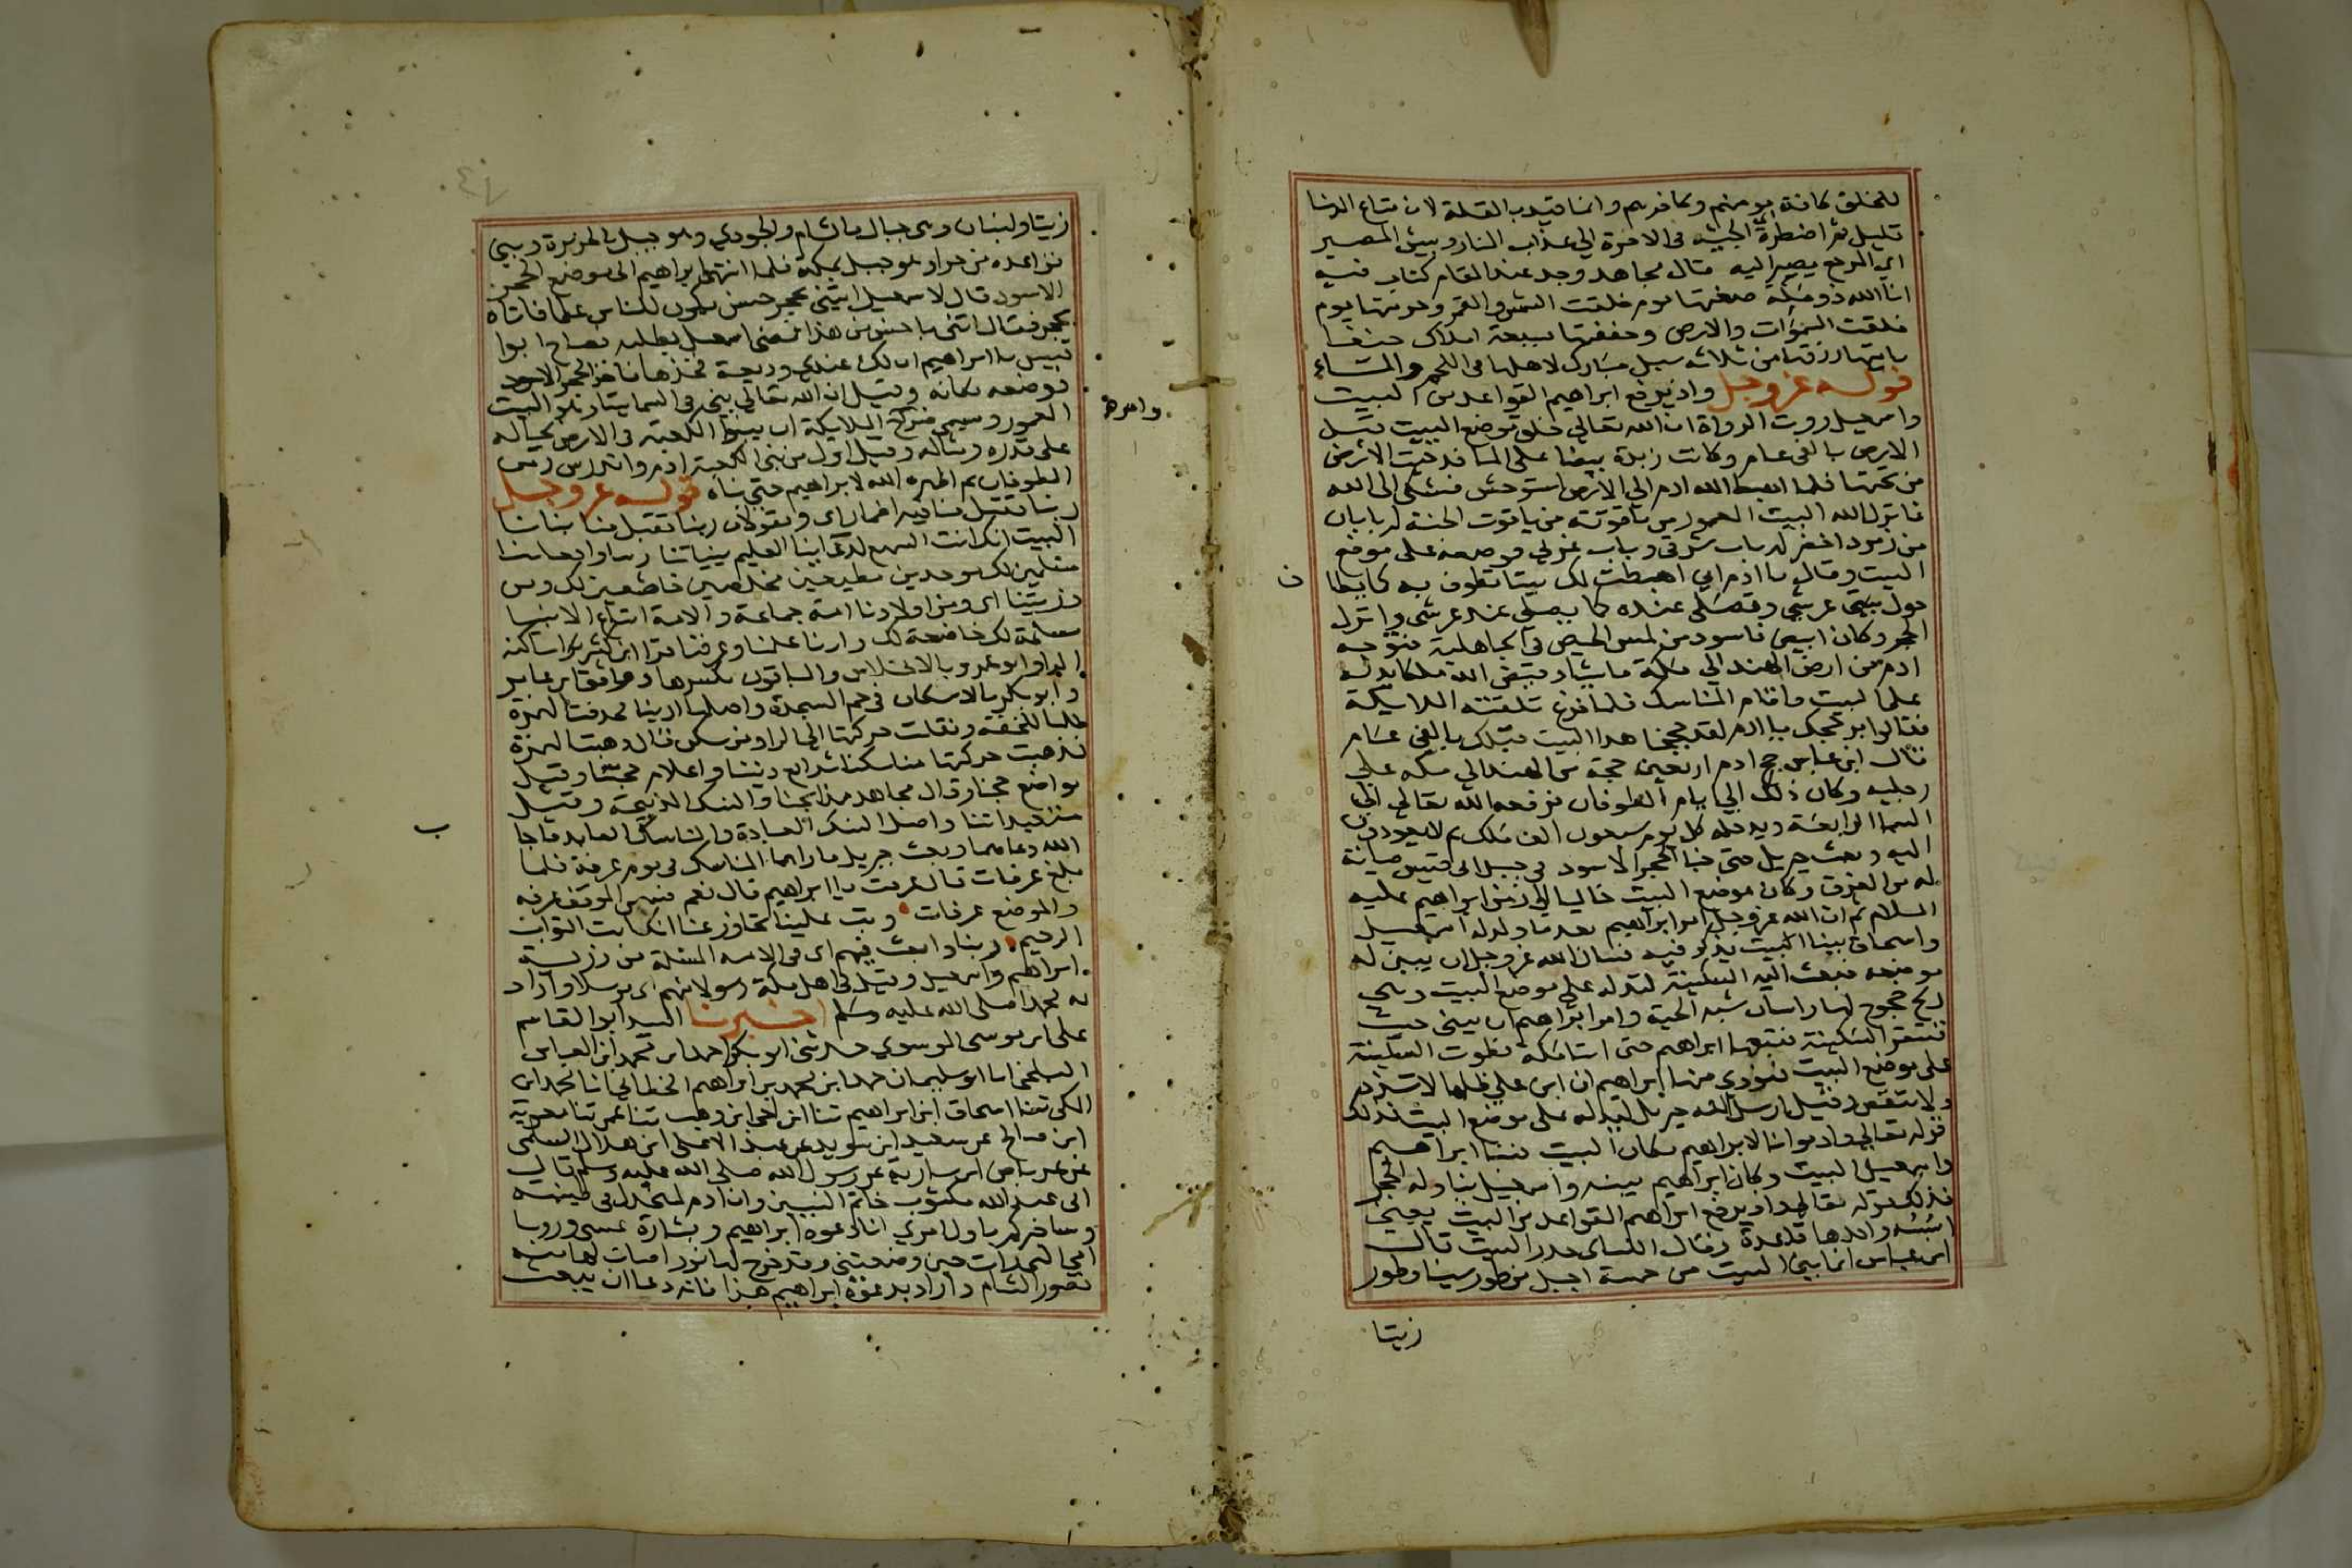 للخلق كافة مومنهم وكافرهم وانما قيد بالقلة لان متاع الدنيا
قليل ثم اضطره الجيه في الاخرة الى عذاب النار وبيس المصير
اي المرجع يصير اليه قال مجاهد وجد عند المقام كتاب فيه
انا الله ذو مكة صغتها يوم خلقت الشمس والقمر وحرمتها يوم
خلقت السموات والارض وحففتها بسبعة املاك حنفا
ياتيها رزقها من ثلاثة سبل مبارك لاهلها في اللحم والماء
قوله عز وجل واذ يرفع ابراهيم القواعد من البيت
واسمعيل روت الرواة ان الله تعالى خلق موضع البيت قبل
الارض بالفي عام وكانت زبدة بيضا على الما فدحيت الارض
من تحتها فلما اهبط الله ادم الى الارض استوحش فشكى الى الله
فانزل الله البيت المعمور من ياقوتة من ياقوت الجنة له بابان
من زمرد اخضر له باب شرقي وباب غربي فوضعه على موضع
البيت وقال يا ادم اني اهبطت لك بيتا تطوف به كما يطاف
حول عرشي وتصلي عنده كما يصلى عند عرشي وانزل
الحجر وكان ابيض فاسود من لمس الحيض في الجاهلية فتوجه
ادم من ارض الهند الى مكة ماشيا وقيض الله ملكا يدله
على البيت واقام المناسك فلما فرغ تلقته الملايكة
فقالوا بر حجك يا ادم لقد حججنا هذا البيت قبلك بالفي عام
قال ابن عباس حج ادم اربعين حجة من الهند الى مكه على
رجليه وكان ذلك الى ايام الطوفان فرفعه الله تعالى الى
السما الرابعة ويدخله كل يوم سبعون الف ملك ثم لا يعودون
اليه وبعث جبريل حتى خبا الحجر الاسود في جبل ابي قبيس صيانة
له من الغرق وكان موضع البيت خاليا الى زمن ابراهيم عليه
السلام ثم ان الله عز وجل امر ابراهيم بعد ما ولد له اسمعيل
واسحاق ببنا البيت يذكر فيه فسال الله عز وجل ان يبين له
موضعه فبعث اليه السكينة لتدله على موضع البيت وهي
ريح خجوج لها راسان شبه الحية وامر ابراهيم ان يبني حيث
تستقر السكينة فتبعها ابراهيم حتى اتيا مكة فطوت السكينة
على موضع البيت فنودي منها ابراهيم ان ابن على ظلها لا تزد
ولا تنقص وقيل ارسل الله جبريل ليدله على موضع البيت فذلك
قوله تعالى واذ بوانا لابراهيم مكان البيت فبنا ابراهيم
واسمعيل البيت وكان ابراهيم يبنيه واسمعيل يناوله الحجر
فذلك قوله تعالى واذ يرفع ابراهيم القواعد من البيت يعني
اسسه واحدها قاعدة وقال الكسائي جدر البيت قال
ابن عباس انما بني البيت من خمسة اجبل من طور سينا وطور
زيتا
زيتا ولبنان وهي جبال بالشام والجودي وهو جبل بالجزيرة وبني
قواعده من حرا وهو جبل بمكة فلما انتهى ابراهيم الى موضع الحجر
الاسود قال لاسمعيل ايتني بحجر حسن يكون للناس علما فاتاه
بحجر فقال ائتني باحسن من هذا فمضى اسمعيل يطلبه فصاح ابوا
قبيس يا ابراهيم ان لك عندي وديعة فخذها فاخذ الحجر الاسود
فوضعه مكانه وقيل ان الله تعالى بنى في السما بيتا وهو البيت
المعمور ويسمى الملايكة ان يبنوا الكعبة في الارض بحياله
وامر
على قدره ومثاله وقيل اول من بنى الكعبة ادم واندرس زمن
الطوفان ثم اظهره الله لابراهيم حتى بناه قوله عز وجل
ربنا تقبل منا فيه اضمار اي ويقولان ربنا تقبل منا بنانا
البيت انك انت السميع لدعاينا العليم بنياتنا ربنا واجعلنا
مسلمين لك موحدين مطيعين مخلصين خاضعين لك ومن
ذريتنا اي ومن اولادنا امة جماعة والامة اتباع الانبيا
مسلمة لك خاضعة لك وارنا علمنا وعرفنا قرا ابن كثير ساكنة
الرا وابو عمرو بالاختلاس والباقون بكسرها ووافق ابن عامر
وابو بكر بالاسكان في حم السجدة واصلها ارينا فحذفت الهمزة
طلبا للخفة ونقلت حركتها الى الرا ومن سكن قال ذهبت الهمزة
فذهبت حركتها مناسكنا شرايع ديننا واعلام حجنا وقيل
مواضع حجنا وقال مجاهد مذابحنا والنسك الذبيحة وقيل
متعبداتنا واصل النسك العبادة والناسك العابد فاجاب
الله دعاهما وبعث جبريل فاراهما المناسك في يوم عرفة فلما
بلغ عرفات قال عرفت يا ابراهيم قال نعم فسمى الوقت عرفه
والموضع عرفات وتب علينا تجاوز عنا انك انت التواب
الرحيم ربنا وابعث فيهم اي في الامة المسلمة من ذرية
ابراهيم واسمعيل وقيل في اهل مكة رسولا منهم اي مرسلا واراد
به محمدا صلى الله عليه وسلم اخبرنا السيد ابو القاسم
على بن موسى الموسوي حدثني ابو بكر احمد بن محمد ابن العباس
البلخي انا ابو سليمان حمد ابن محمد بن ابراهيم الخطابي انا محمد ابن
المكي ثنا اسحاق ابن ابراهيم ثنا ابن اخي ابن وهب ثنا عمي ثنا معوية
ابن صالح عن سعيد ابن سويد عن عبد الاعلى ابن هلال السلمي
عن عرباض ابن سارية عن رسول الله صلى الله عليه وسلم قال
اني عند الله مكتوب خاتم النبيين وان ادم لمنجدل في طينته
وساخبركم باول امري انا دعوة ابراهيم وبشارة عيسى ورويا
امي التي رات حين وضعتني وقد خرج لها نور اضات لها منه
قصور الشام واراد بدعوة ابراهيم هذا فانه دعا ان يبعث